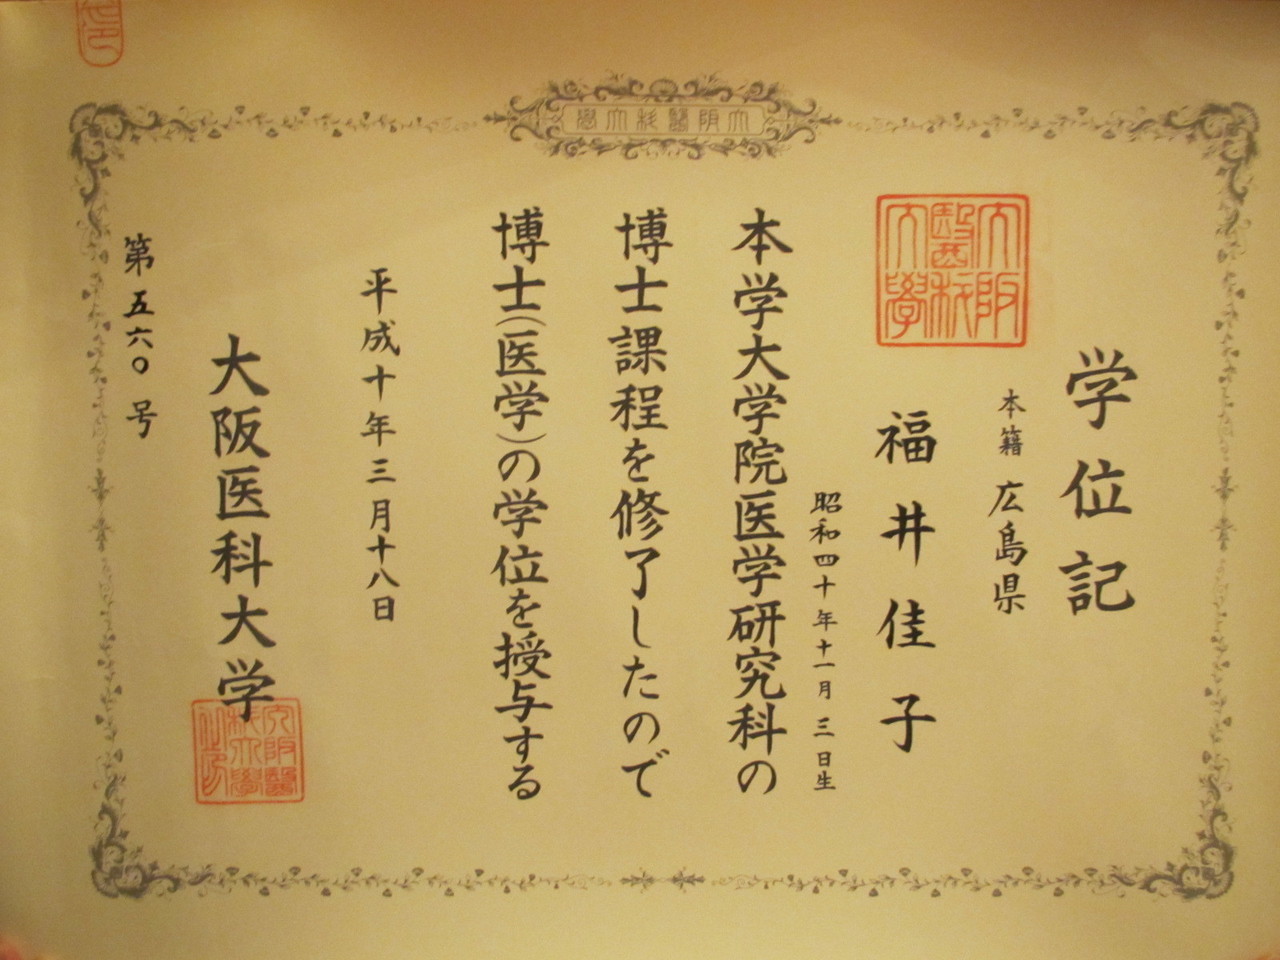 大阪醫科大学
学位記
大阪醫科大學
本籍 広島県
福井佳子
昭和四十年十一月三日生
本学大学院医学研究科の
博士課程を修了したので
博士(医学)の学位を授与する
平成十年三月十八日
大阪医科大学
第五六〇号